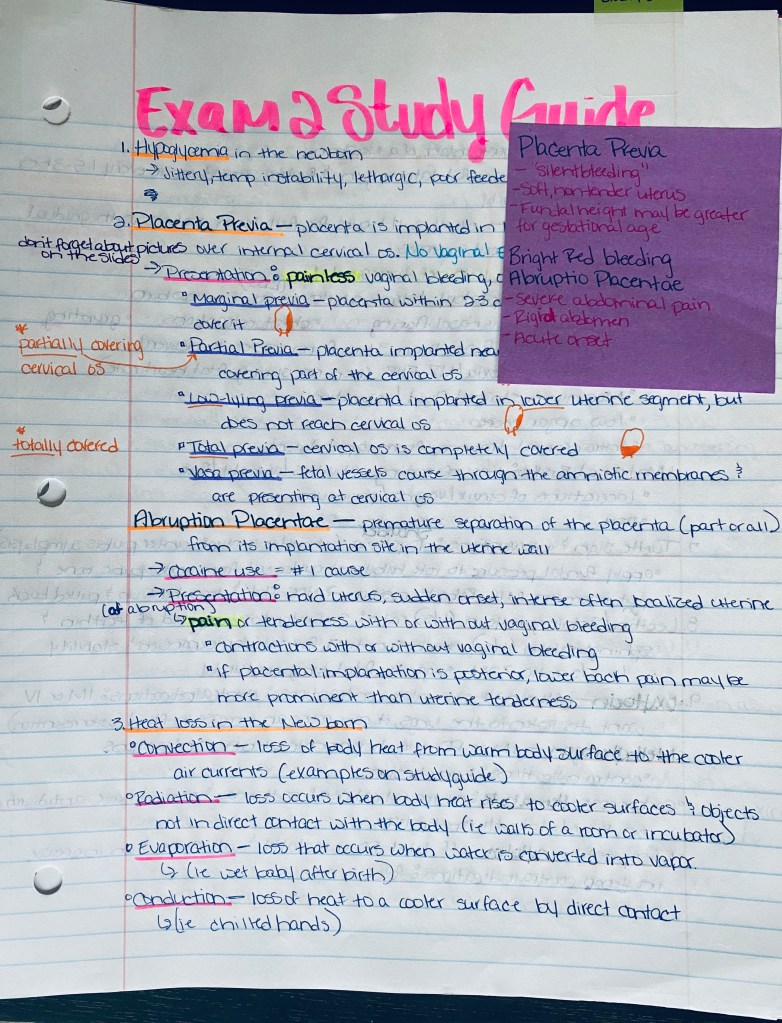 Exam 2 Study Guide
1. Hypoglycemia in the newborn
→ Jittery, temp instability, lethargic, poor feede
2. Placenta Previa — placenta is implanted in
don't forget about pictures on the slides
over internal cervical os. No vaginal
→ Presentation: painless vaginal bleeding,
▫ Marginal previa — placenta within 2-3
cover it
* partially covering cervical os
▫ Partial Previa — placenta implanted nea
covering part of the cervical os
▫ Low-lying previa — placenta implanted in lower uterine segment, but
does not reach cervical os
* totally covered
▫ Total previa — cervical os is completely covered
▫ Vasa previa — fetal vessels course through the amniotic membranes &
are presenting at cervical os
Abruption Placentae — premature separation of the placenta (part or all)
from its implantation site in the uterine wall
→ Cocaine use = #1 cause
→ Presentation: hard uterus, sudden onset, intense often localized uterine
(of abruption)
↳ pain or tenderness with or without vaginal bleeding
▫ contractions with or without vaginal bleeding
▫ if placental implantation is posterior, lower back pain may be
more prominent than uterine tenderness
3. Heat loss in the Newborn
° Convection — loss of body heat from warm body surface to the cooler
air currents (examples on study guide)
° Radiation — loss occurs when body heat rises to cooler surfaces & objects
not in direct contact with the body (ie walls of a room or incubator)
° Evaporation — loss that occurs when water is converted into vapor.
↳ (ie wet baby after birth)
° Conduction — loss of heat to a cooler surface by direct contact
↳ (ie chilled hands)
Placenta Previa
- "silent bleeding"
- Soft, non-tender uterus
- Fundal height may be greater
for gestational age
Bright Red bleeding
Abruptio Placentae
- Severe abdominal pain
- Rigid abdomen
- Acute onset